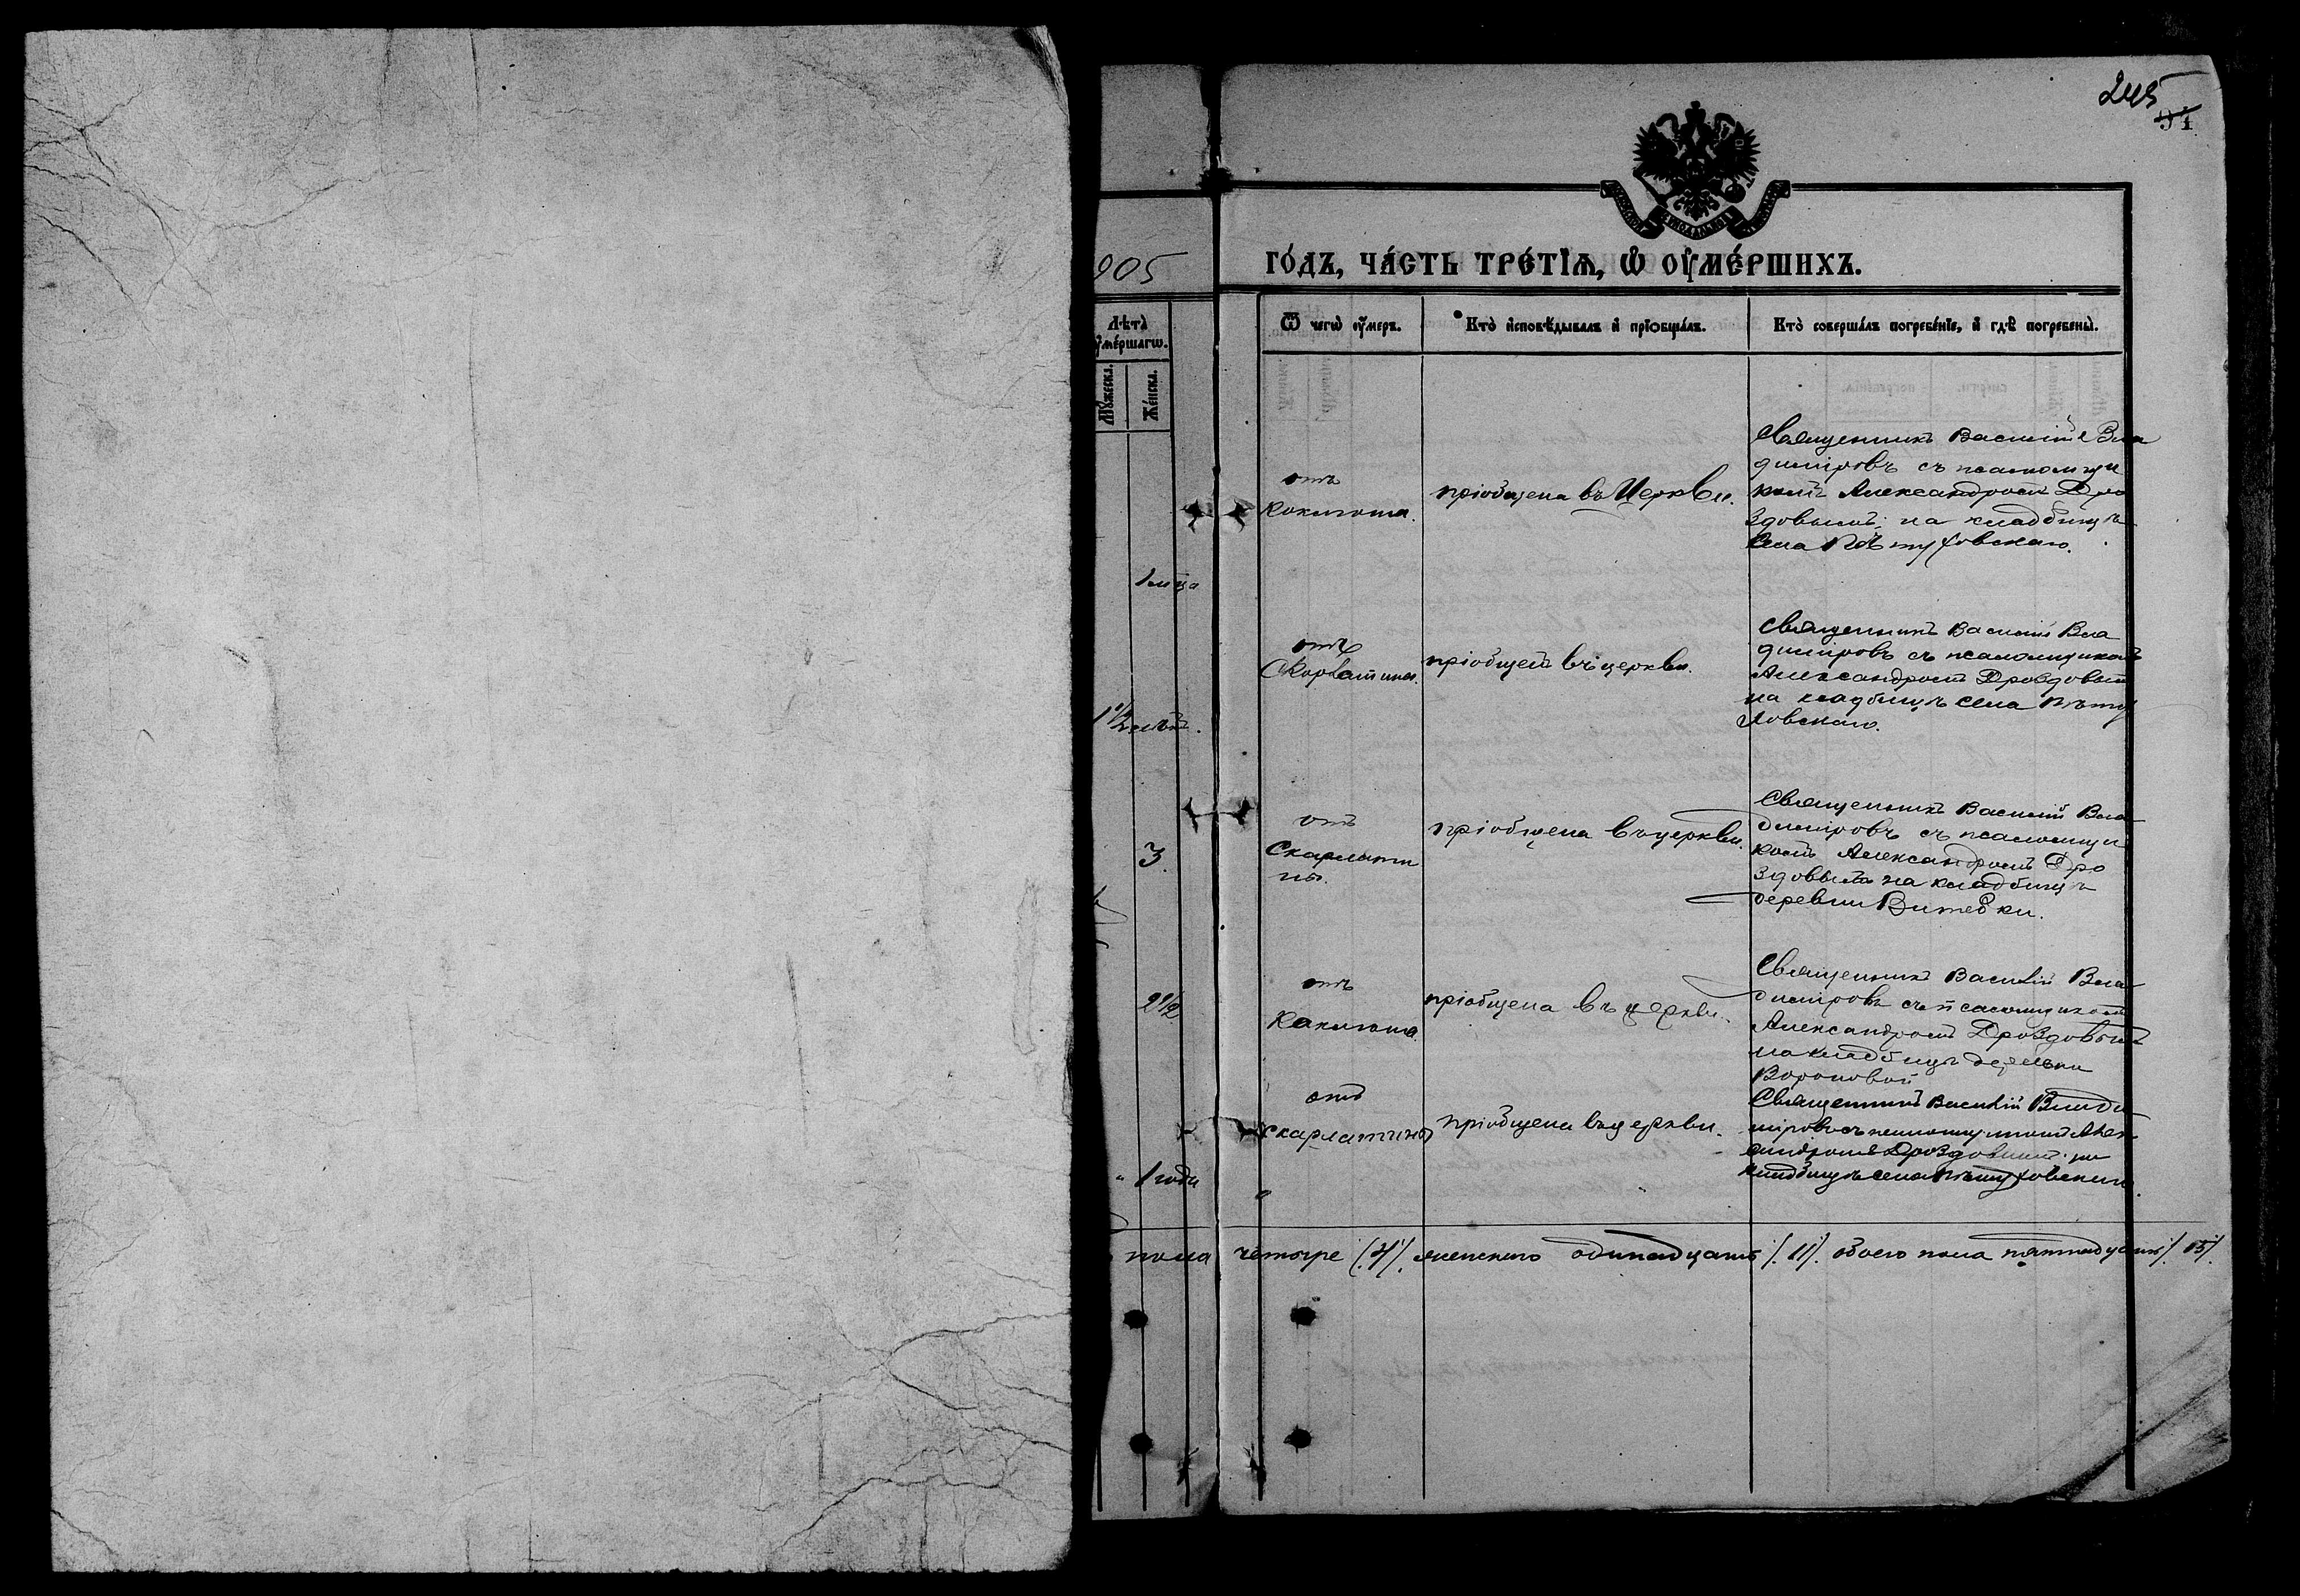 245
94
905
ГОДЪ, ЧАСТЬ ТРЕТІѦ, Ѡ ОУМЕРШИХЪ.
Лѣта
умершагѡ.
Мужеска.
Женска.
Ѿ чегѡ умеръ.
Кто исповѣдывалъ и пріобщалъ.
Кто совершалъ погребеніе, и гдѣ погребены.
1 м-ца
отъ
Коклюша.
пріобщена въ Церкви.
Священникъ Василій Вла
диміровъ съ псаломщи
комъ Александромъ Дро
здовымъ, на кладбищѣ
села Пѣтуховскаго.
1 1/2 лѣтъ.
отъ
Скорлатины.
пріобщенъ въ церкви.
Священникъ Василій Вла
диміровъ съ псаломщикомъ
Александромъ Дроздовымъ
на кладбищѣ села Пѣту
ховскаго.
3.
отъ
Скарлати
ны.
пріобщена въ церкви.
Священникъ Василій Вла
диміровъ съ псаломщи
комъ Александромъ Дро
здовымъ на кладбищѣ
деревни Витебки.
2 1/2
отъ
Коклюша.
пріобщена въ церкви.
Священникъ Василій Вла
диміровъ съ псаломщикомъ
Александромъ Дроздовымъ
на кладбищѣ деревни
Вороновой
1 года
отъ
скарлатины
пріобщена въ церкви.
Священникъ Василій Влади
міровъ съ псаломщикомъ Алек
сандромъ Дроздовымъ на
кладбищѣ села Пѣтуховскаго.
пола четыре /4/. женскаго одинадцать /11/. обоего пола пятнадцать /15/.